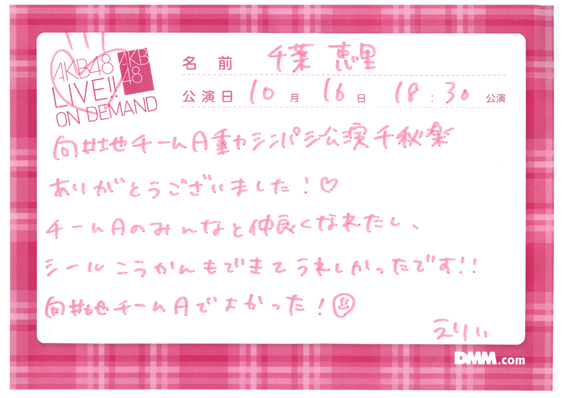 AKB48
LIVE!!
ON DEMAND
AKB
48
名前 千葉 恵里
公演日 10月16日 18:30公演
向井地チームA重力シンパシー公演千秋楽
ありがとうございました!♡
チームAのみんなと仲良くなれたし、
シールこうかんもできてうれしかったです!!
向井地チームAでよかった!
えりぃ
DMM.com